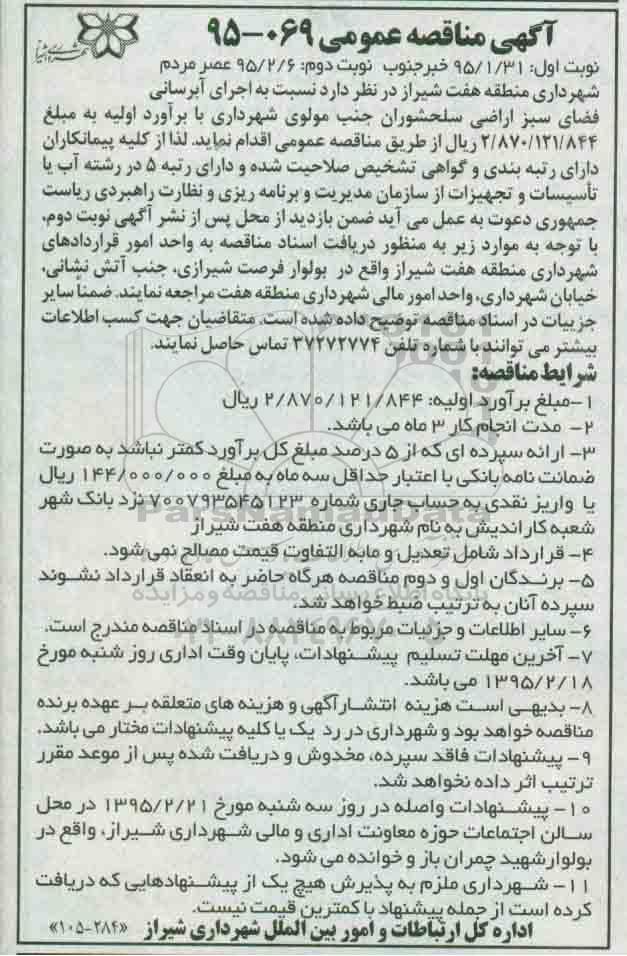 آگهی مناقصه عمومی ۰۶۹-۹۵
نوبت اول: ۹۵/۱/۳۱ خبرجنوب نوبت دوم: ۹۵/۲/۶ عصر مردم
شهرداری منطقه هفت شیراز در نظر دارد نسبت به اجرای آبرسانی
فضای سبز اراضی سلحشوران جنب مولوی شهرداری با برآورد اولیه به مبلغ
۲/۸۷۰/۱۲۱/۸۴۴ ریال از طریق مناقصه عمومی اقدام نماید. لذا از کلیه پیمانکاران
دارای رتبه بندی و گواهی تشخیص صلاحیت شده و دارای رتبه ۵ در رشته آب یا
تأسیسات و تجهیزات از سازمان مدیریت و برنامه ریزی و نظارت راهبردی ریاست
جمهوری دعوت به عمل می آید ضمن بازدید از محل پس از نشر آگهی نوبت دوم،
با توجه به موارد زیر به منظور دریافت اسناد مناقصه به واحد امور قراردادهای
شهرداری منطقه هفت شیراز واقع در بولوار فرصت شیرازی، جنب آتش نشانی،
خیابان شهرداری، واحد امور مالی شهرداری منطقه هفت مراجعه نمایند. ضمنا سایر
جزییات در اسناد مناقصه توضیح داده شده است. متقاضیان جهت کسب اطلاعات
بیشتر می توانند با شماره تلفن ۳۷۲۷۲۷۷۴ تماس حاصل نمایند.
شرایط مناقصه:
۱-مبلغ برآورد اولیه: ۲/۸۷۰/۱۲۱/۸۴۴ ریال
۲- مدت انجام کار ۳ ماه می باشد.
۳- ارائه سپرده ای که از ۵ درصد مبلغ کل برآورد کمتر نباشد به صورت
ضمانت نامه بانکی با اعتبار حداقل سه ماه به مبلغ ۱۴۴/۰۰۰/۰۰۰ ریال
یا واریز نقدی به حساب جاری شماره ۷۰۰۷۹۳۵۴۵۱۲۳ نزد بانک شهر
شعبه کاراندیش به نام شهرداری منطقه هفت شیراز
۴- قرارداد شامل تعدیل و مابه التفاوت قیمت مصالح نمی شود.
۵- برندگان اول و دوم مناقصه هرگاه حاضر به انعقاد قرارداد نشوند
سپرده آنان به ترتیب ضبط خواهد شد.
۶- سایر اطلاعات و جزئیات مربوط به مناقصه در اسناد مناقصه مندرج است.
۷- آخرین مهلت تسلیم پیشنهادات، پایان وقت اداری روز شنبه مورخ
۱۳۹۵/۲/۱۸ می باشد.
۸- بدیهی است هزینه انتشارآگهی و هزینه های متعلقه بر عهده برنده
مناقصه خواهد بود و شهرداری در رد یک یا کلیه پیشنهادات مختار می باشد.
۹- پیشنهادات فاقد سپرده، مخدوش و دریافت شده پس از موعد مقرر
ترتیب اثر داده نخواهد شد.
۱۰- پیشنهادات واصله در روز سه شنبه مورخ ۱۳۹۵/۲/۲۱ در محل
سالن اجتماعات حوزه معاونت اداری و مالی شهرداری شیراز، واقع در
بولوارشهید چمران باز و خوانده می شود.
۱۱- شهرداری ملزم به پذیرش هیچ یک از پیشنهادهایی که دریافت
کرده است از جمله پیشنهاد با کمترین قیمت نیست.
اداره کل ارتباطات و امور بین الملل شهرداری شیراز «۱۰۵-۲۸۴»